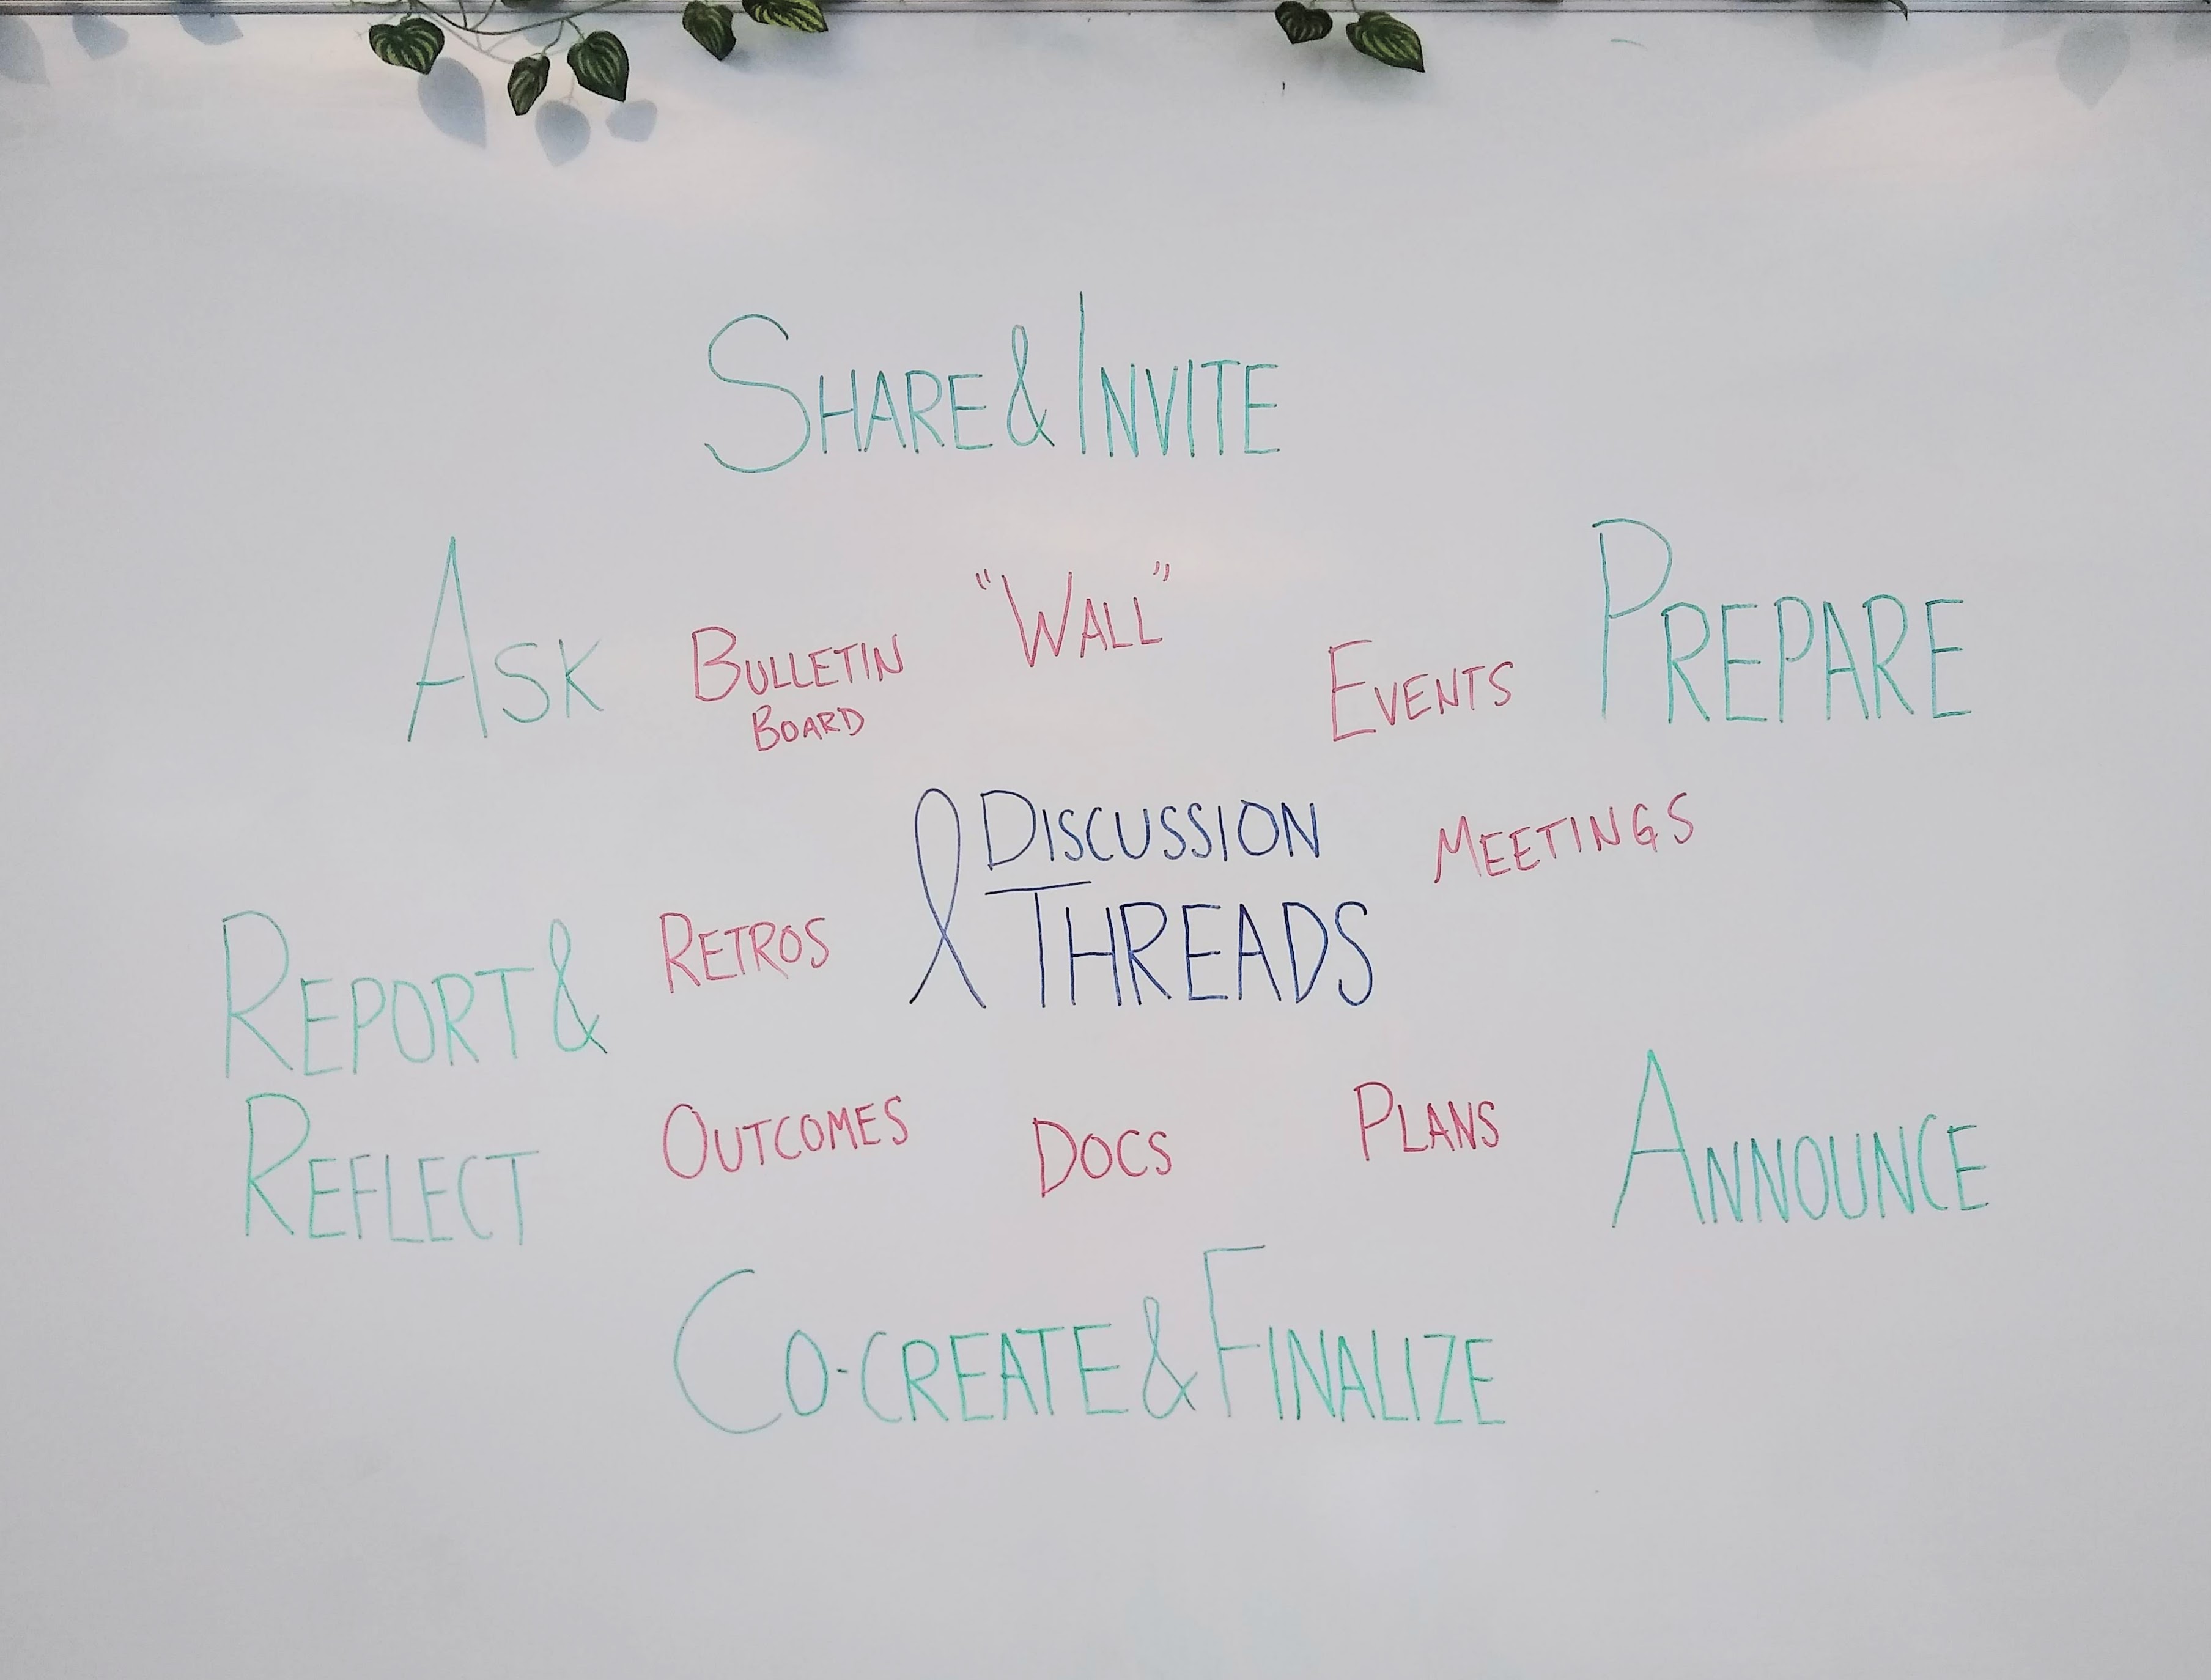 Share & Invite
Ask
Bulletin
Board
"Wall"
Events
Prepare
Discussion
Threads
Meetings
Report &
Reflect
Retros
Outcomes
Docs
Plans
Announce
Co-create & Finalize